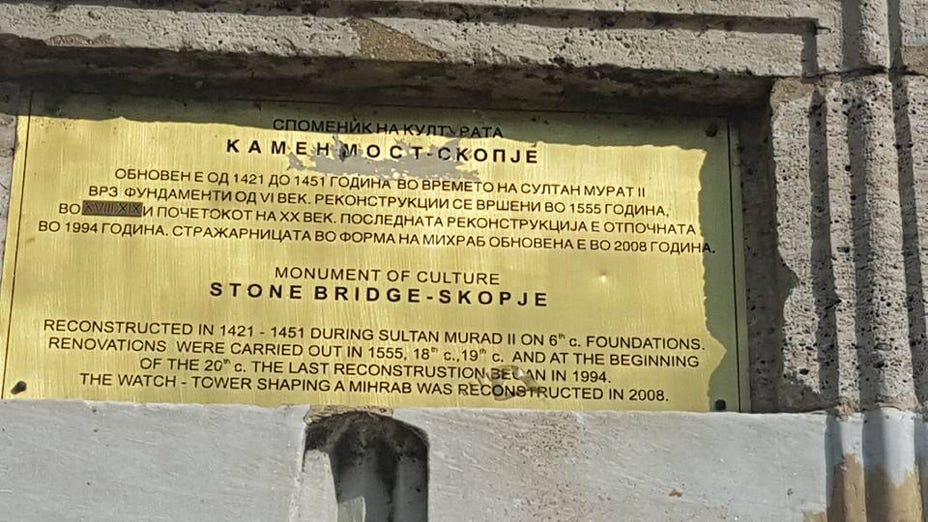 СПОМЕНИК НА КУЛТУРАТА
КАМЕН МОСТ-СКОПЈЕ
ОБНОВЕН Е ОД 1421 ДО 1451 ГОДИНА ВО ВРЕМЕТО НА СУЛТАН МУРАТ II
ВРЗ ФУНДАМЕНТИ ОД VI ВЕК. РЕКОНСТРУКЦИИ СЕ ВРШЕНИ ВО 1555 ГОДИНА,
ВО XVIII XIX И ПОЧЕТОКОТ НА XX ВЕК. ПОСЛЕДНАТА РЕКОНСТРУКЦИЈА Е ОТПОЧНАТА
ВО 1994 ГОДИНА. СТРАЖАРНИЦАТА ВО ФОРМА НА МИХРАБ ОБНОВЕНА Е ВО 2008 ГОДИНА.
MONUMENT OF CULTURE
STONE BRIDGE-SKOPJE
RECONSTRUCTED IN 1421 - 1451 DURING SULTAN MURAD II ON 6th c. FOUNDATIONS.
RENOVATIONS WERE CARRIED OUT IN 1555, 18th c.,19th c. AND AT THE BEGINNING
OF THE 20th c. THE LAST RECONSTRUSTION BEGAN IN 1994.
THE WATCH - TOWER SHAPING A MIHRAB WAS RECONSTRUCTED IN 2008.